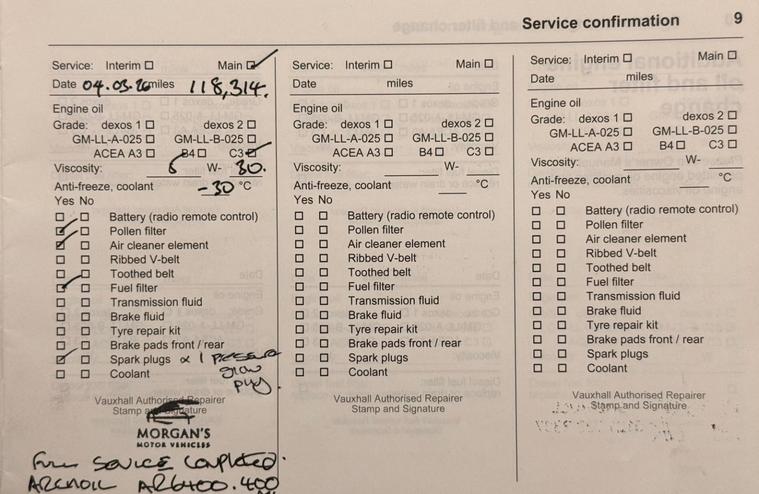 Service confirmation 9
Service: Interim Main
Date 04.03.26 miles 118,314.
Engine oil
Grade: dexos 1 dexos 2
GM-LL-A-025 GM-LL-B-025
ACEA A3 B4 C3
Viscosity: W- 30.
Anti-freeze, coolant -30 °C
Yes No
Battery (radio remote control)
Pollen filter
Air cleaner element
Ribbed V-belt
Toothed belt
Fuel filter
Transmission fluid
Brake fluid
Tyre repair kit
Brake pads front / rear
Spark plugs x 1 pressure
glow
plug.
Coolant
Vauxhall Authorised Repairer
Stamp and Signature
MORGAN'S
MOTOR VEHICLES
Full SERVICE COMPLETED.
ARCHOIL AR6400.400
Service: Interim Main
Date miles
Engine oil
Grade: dexos 1 dexos 2
GM-LL-A-025 GM-LL-B-025
ACEA A3 B4 C3
Viscosity: W-
Anti-freeze, coolant °C
Yes No
Battery (radio remote control)
Pollen filter
Air cleaner element
Ribbed V-belt
Toothed belt
Fuel filter
Transmission fluid
Brake fluid
Tyre repair kit
Brake pads front / rear
Spark plugs
Coolant
Vauxhall Authorised Repairer
Stamp and Signature
Service: Interim Main
Date miles
Engine oil
Grade: dexos 1 dexos 2
GM-LL-A-025 GM-LL-B-025
ACEA A3 B4 C3
Viscosity: W-
Anti-freeze, coolant °C
Yes No
Battery (radio remote control)
Pollen filter
Air cleaner element
Ribbed V-belt
Toothed belt
Fuel filter
Transmission fluid
Brake fluid
Tyre repair kit
Brake pads front / rear
Spark plugs
Coolant
Vauxhall Authorised Repairer
Stamp and Signature